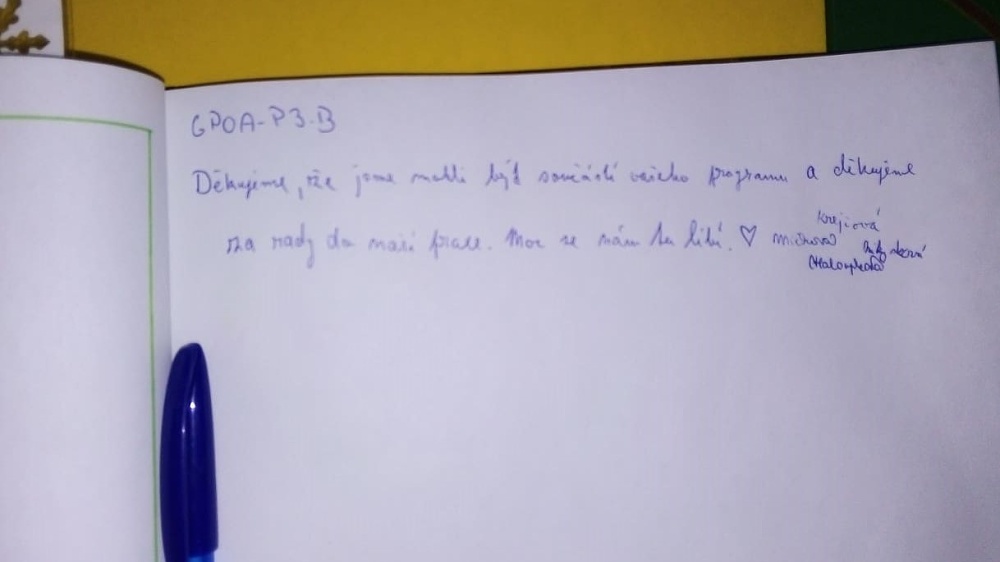 GPOA-P3-B
Děkujeme, že jsme mohli být součástí vašeho programu a děkujeme
za rady do naší praxe. Moc se nám tu líbí. ♡
Krejiová